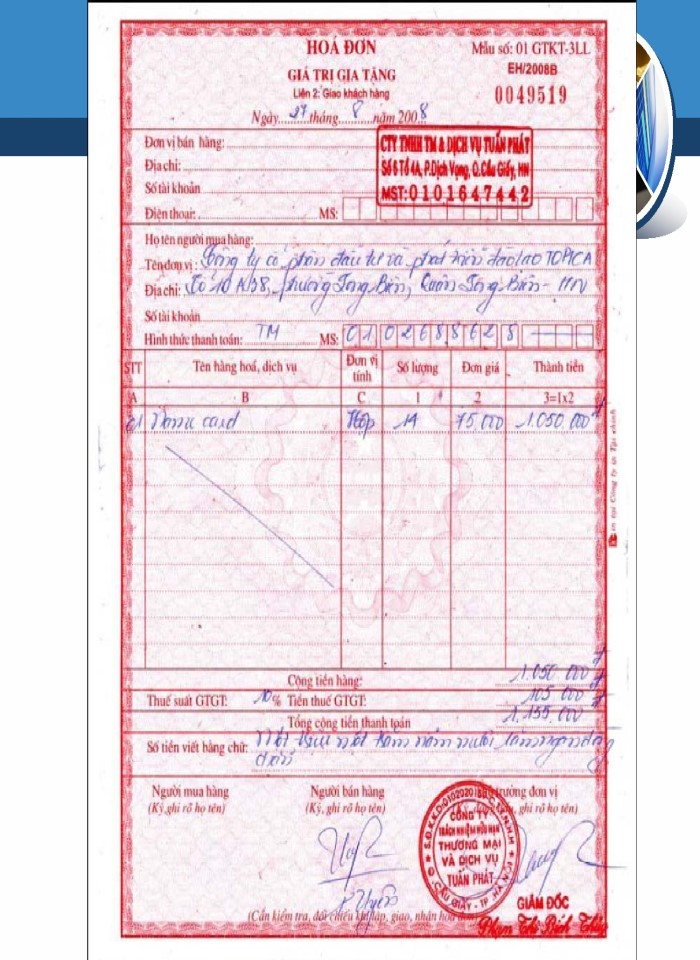 HOÁ ĐƠN
GIÁ TRỊ GIA TĂNG
Liên 2: Giao khách hàng
Mẫu số: 01 GTKT-3LL
EH/2008B
0049519
Ngày 27 tháng 8 năm 2008
Đơn vị bán hàng:
Địa chỉ:
Số tài khoản
Điện thoại: MS:
CTY TNHH TM & DỊCH VỤ TUẤN PHÁT
Số 6 Tổ 4A, P.Dịch Vọng, Q.Cầu Giấy, HN
MST: 0101647442
Họ tên người mua hàng:
Tên đơn vị: Công ty cổ phần đầu tư và phát triển đào tạo TOPICA
Địa chỉ: Số 10 A38, phường Long Biên, Quận Long Biên - HN
Số tài khoản
Hình thức thanh toán: TM MS: 0102688628
STT Tên hàng hoá, dịch vụ Đơn vị tính Số lượng Đơn giá Thành tiền
A B C 1 2 3=1x2
01 Name card Hộp 14 75.000 1.050.000đ
Cộng tiền hàng: 1.050.000đ
Thuế suất GTGT: 10% Tiền thuế GTGT: 105.000đ
Tổng cộng tiền thanh toán 1.155.000đ
Số tiền viết bằng chữ: Một triệu một trăm năm mươi lăm ngàn đồng
chẵn
Người mua hàng
(Ký, ghi rõ họ tên)
Người bán hàng
(Ký, ghi rõ họ tên)
trưởng đơn vị
ghi rõ họ tên)
CÔNG TY
TRÁCH NHIỆM HỮU HẠN
THƯƠNG MẠI
VÀ DỊCH VỤ
TUẤN PHÁT
Q. CẦU GIẤY - TP. HÀ NỘI
GIÁM ĐỐC
Phạm Thị Bích Thủy
(Cần kiểm tra, đối chiếu khi lập, giao, nhận hoá đơn)